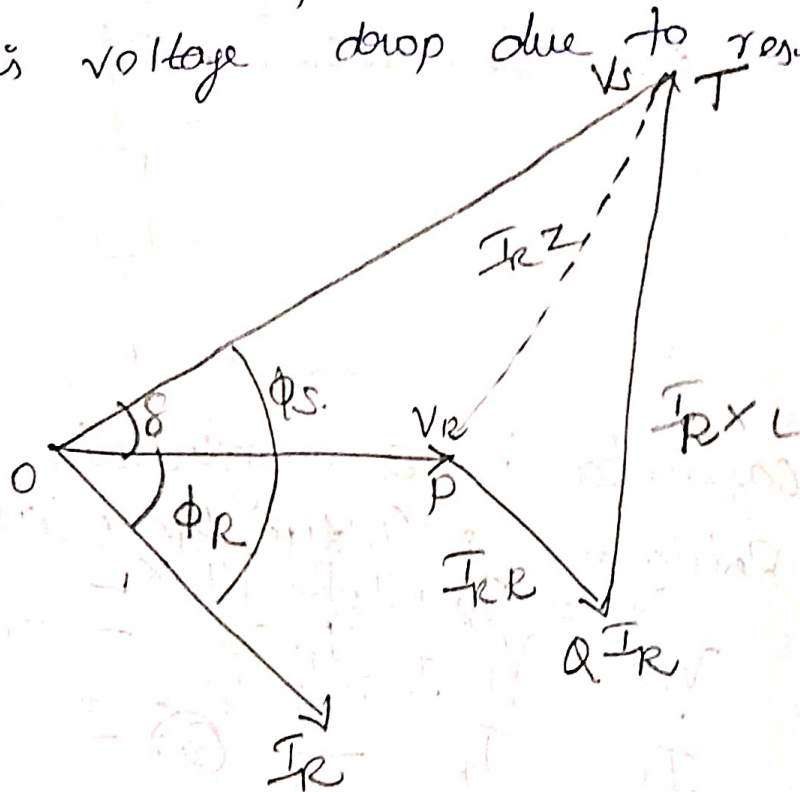 is voltage drop due to res
Vs T
IR Z
δ φs.
VR
IR X L
O
P
φR
IR R
Q IR
IR